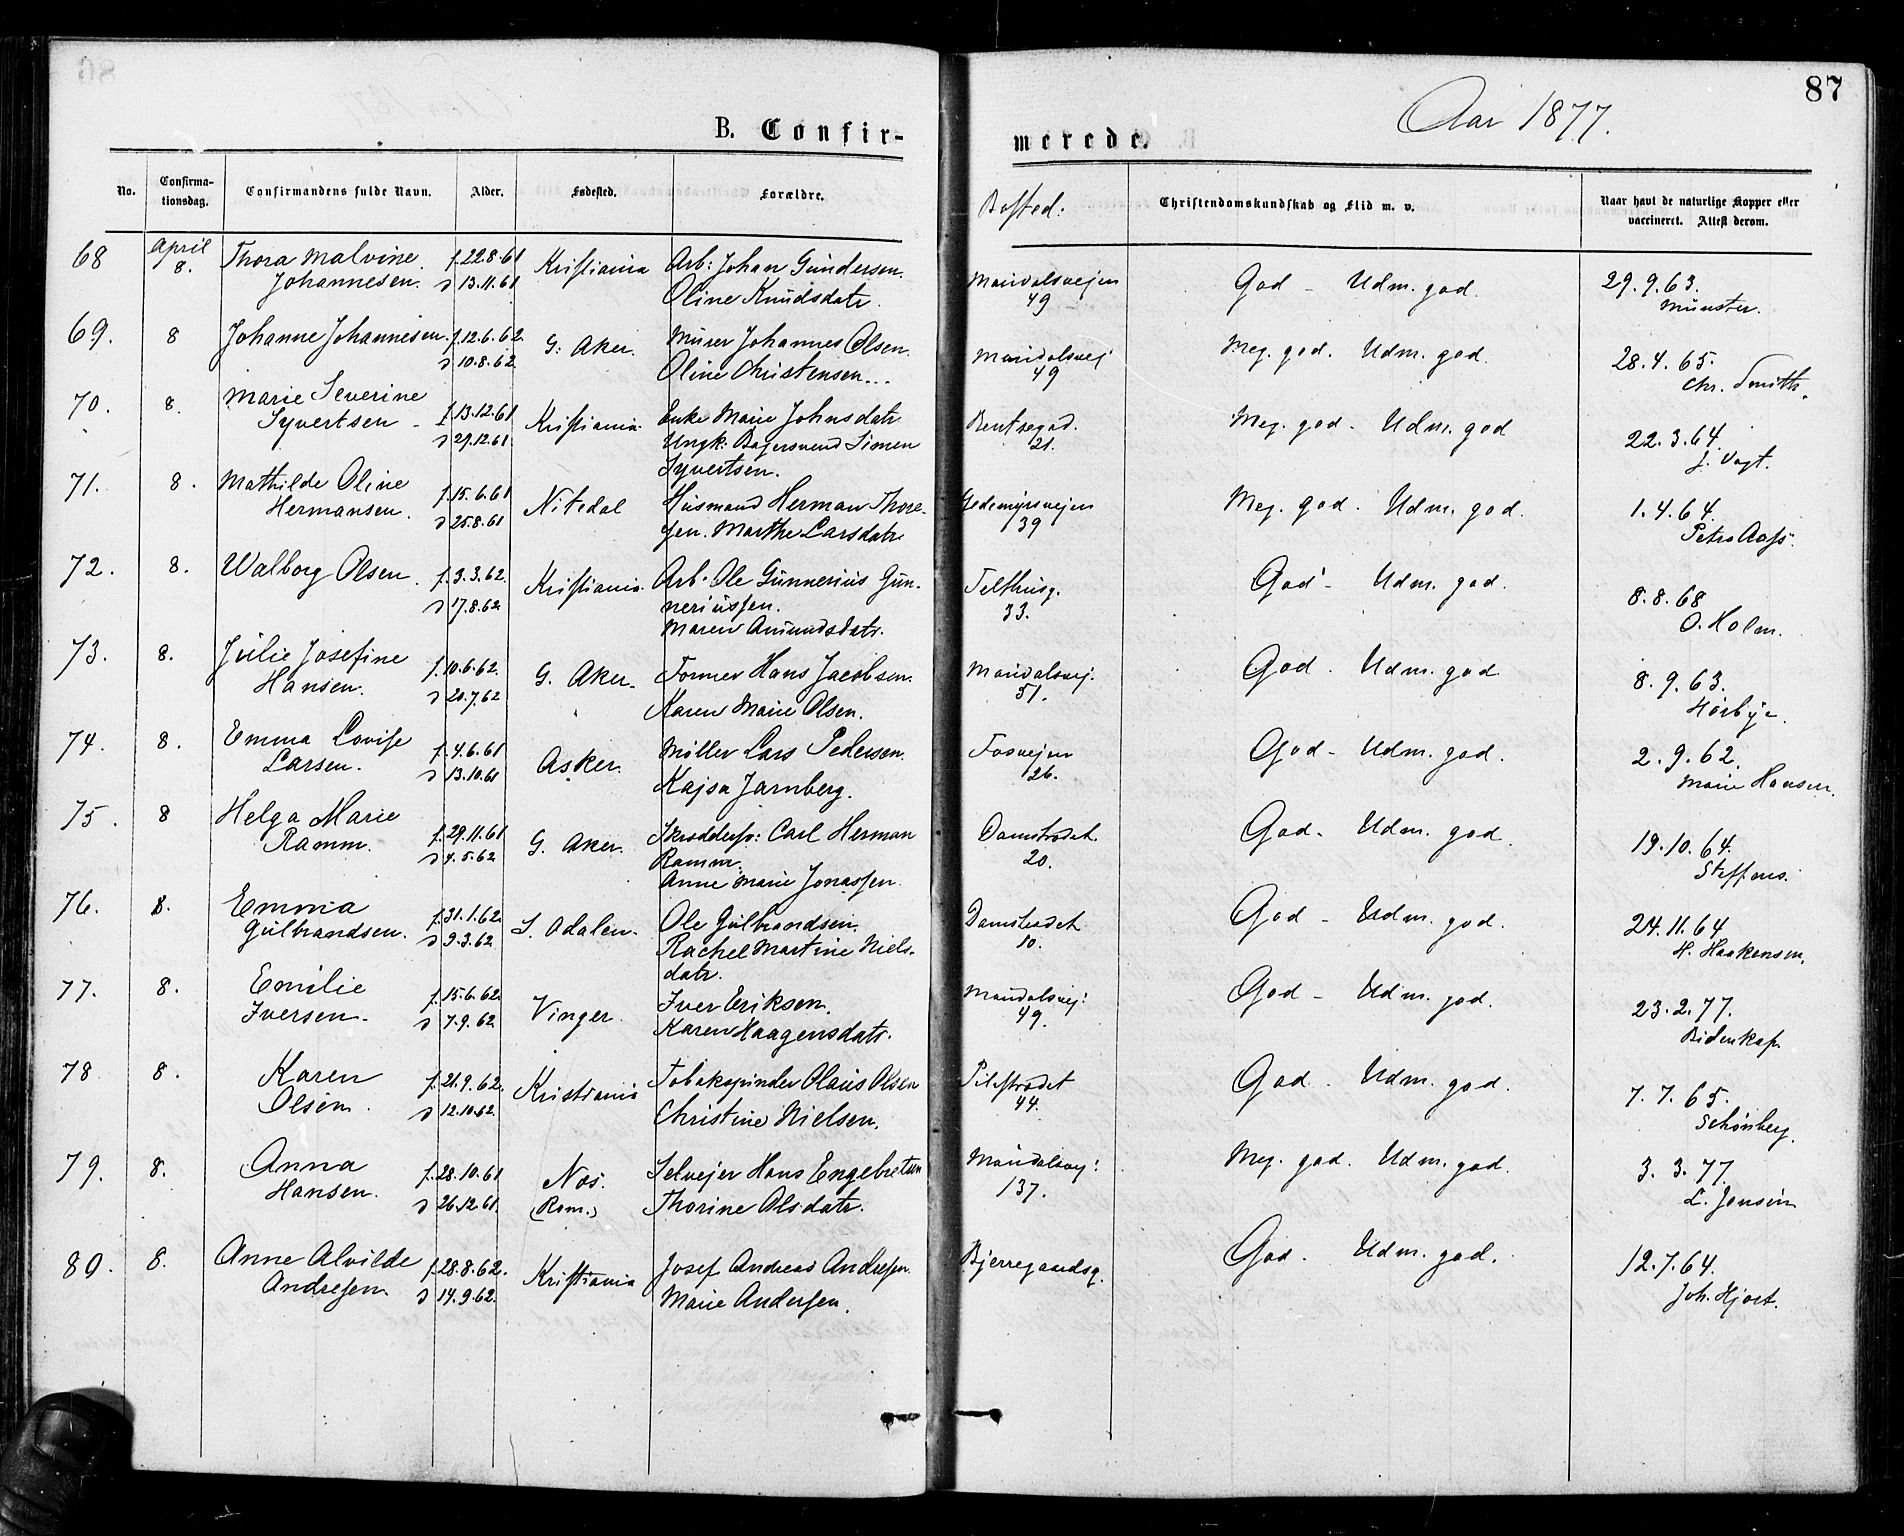 87
Aar 1877.
B. Confir-
merede.
No. Confirma-tionsdag. Confirmandens fulde Navn. Alder. Fødested. Forældre. Bosted: Christendomskundskab og Flid m. v. Naar havt de naturlige Kopper eller vaccineret. Attest derom.
68 April 8. Thora Malvine f. 22.8.61 Kristiania Arb: Johan Gundersen. Maridalsveien God - Udm. god. 29.9.63.
Johannesen. D 13.11.61 Oline Knudsdatr. 49 Münster.
69. 8 Johanne Johannesen. f. 12.6.62. G: Aker. Murer Johannes Olsen. Maridalsvej Meg. god. Udm. god. 28.4.65.
D 10.8.62. Oline Christensen... 49 Chr. Smith.
70. 8. Marie Severine f. 13.12.61 Kristiania Enke Marie Johnsdatr Bentsegad. Meg. god. Udm. god 22.3.64.
Syvertsen - D 29.12.61. Ungk: Bagersvend Simen 21. J. Vogt.
Syvertsen.
71. 8. Mathilde Oline f. 15.6.61 Nitedal Husmand Herman Thore- Gedemyrsvejen Meg. god. Udm. god. 1.4.64.
Hermansen. D 25.8.61 sen. Marthe Larsdatr 39 Petra Aass.
72. 8. Walborg Olsen. f. 3.3.62. Kristiania. Arb. Ole Gunnerius Gun- Telthusg. God - Udm. god. 8.8.68
D 17.8.62. neriussen. 33. O. Holm.
Maren Amundsdatr.
73. 8. Julie Josefine f. 10.6.62. G. Aker. Former Hans Jacobsen. Maridalsvej. God. Udm. god 8.9.63.
Hansen. D 20.7.62 Karen Marie Olsen. 51. Hørbye.
74. 8. Emma Lovise f. 4.6.61 Asker. Møller Lars Pedersen. Fosvejen God - Udm. god. 2.9.62.
Larsen. D 13.10.61 Kajsa Jarnberg. 26. Marie Hansen.
75. 8 Helga Marie f. 29.11.61 G. Aker. Carl Herman Damstrædet. God. Udm. god. 19.10.64.
Ramm. D 4.5.62 Ramm. 20. Steffens.
Anne Marie Jonassen.
76. 8. Emma f. 31.1.62. S. Odalen. Ole Gulbrandsen. Damstrædet God - Udm. god. 24.11.64
Gulbrandsen. D 9.3.62 Rachel Martine Niels- 10. H. Haakensen.
datr.
77. 8. Emilie f. 15.6.62. Vinger. Iver Eriksen. Maridalsvej: God - Udm. god. 23.2.77.
Iversen. D 7.9.62 Karen Haagensdatr. 49. Bidenkap.
78 8. Karen f. 21.9.62. Kristiania Tobakspinder Olaus Olsen Pilestrædet God. Udm. god. 7.7.65.
Olsen. D 12.10.62. Christine Nielsen. 44. Schønberg.
79. 8. Anna f. 28.10.61 Næs. Selvejer Hans Engebretsen Maridalsvej: Meg. god. Udm. god. 3.3.77.
Hansen. D 26.12.61. (Rom.) Thorine Olsdatr. 137. L. Jensen
80. 8. Anne Alvilde f. 28.8.62. Kristiania Josef Andreas Andresen. Bjerregaardsg. God. Udm. god. 12.7.64.
Andresen. D 14.9.62. Marie Andersen. Joh. Hjort.